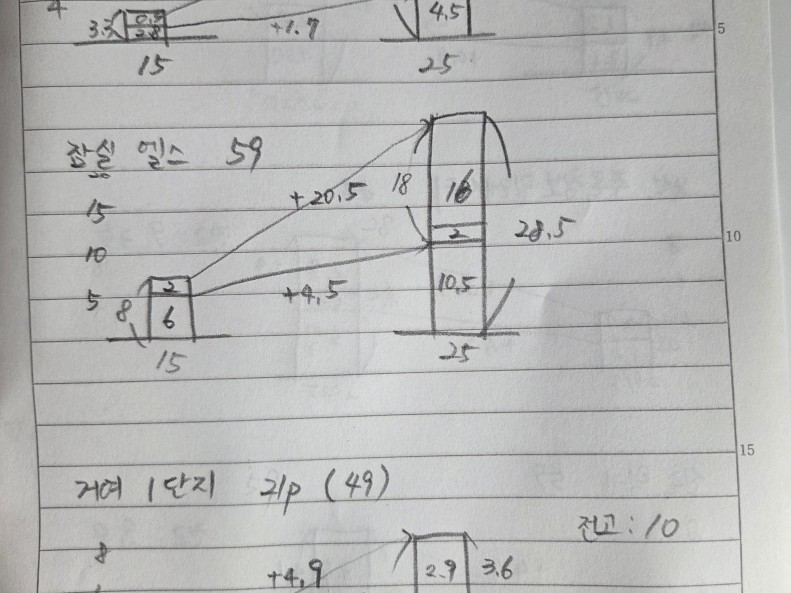 4
3.3 0.5
2.8
+1.7
4.5
5
15 25
잠실 엘스 59
+20.5
18 16
15
2 28.5 10
10
2
5 8 6
+4.5
10.5
15 25
15
거여 1단지 21p (49)
전고 : 10
8
+4.9
2.9 3.6